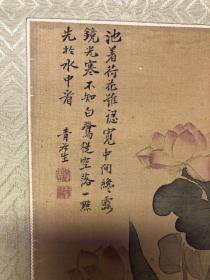 池着荷花雖認寬中開聯露
鏡光寒不知白鷺從空落一點
先於水中看
青於生